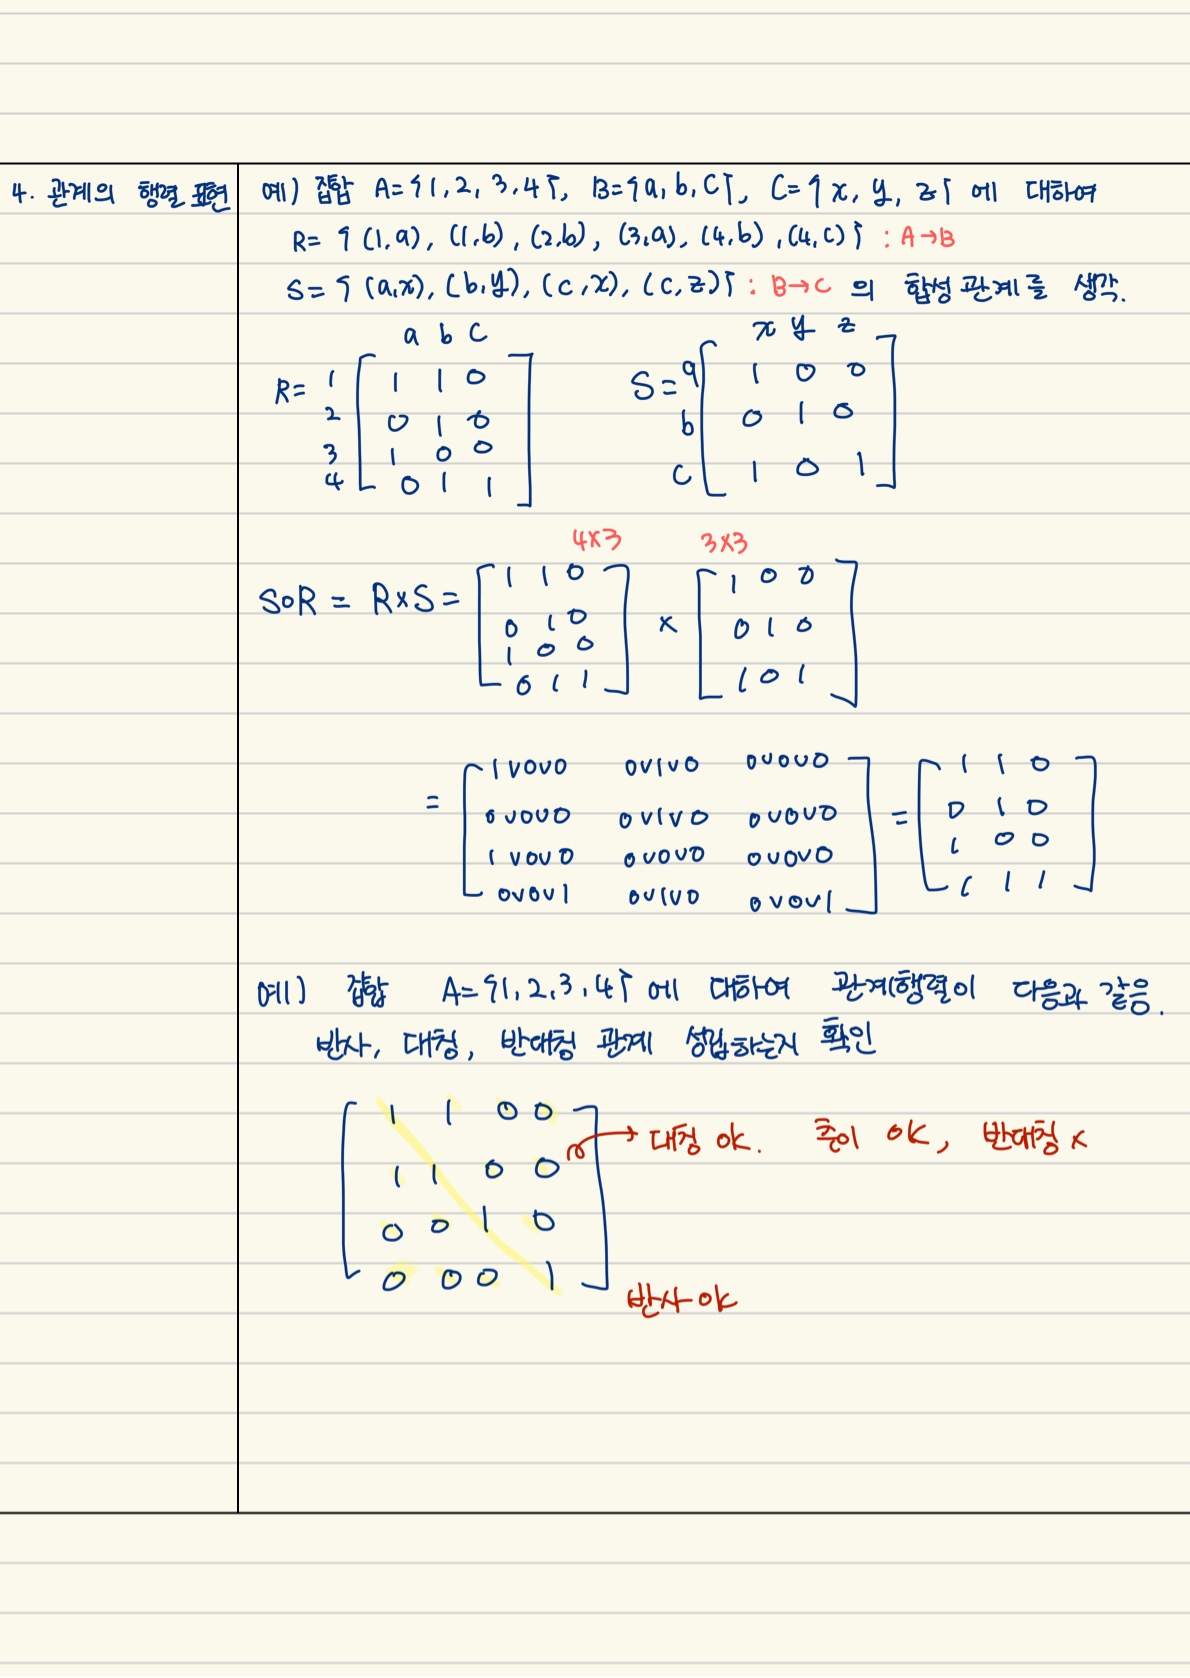 4. 관계의 행렬 표현
예) 집합 A={1, 2, 3, 4}, B={a, b, c}, C={x, y, z} 에 대하여
R= { (1,a), (1,b), (2,b), (3,a), (4,b), (4,c)} : A→B
S= { (a,x), (b,y), (c,x), (c,z)} : B→C 의 합성 관계를 생각.
a b c
x y z
R= 1 1 1 0
2 0 1 0
3 1 0 0
4 0 1 1
S= a 1 0 0
b 0 1 0
c 1 0 1
4×3 3×3
S∘R = R×S = [ 1 1 0
0 1 0
1 0 0
0 1 1 ] × [ 1 0 0
0 1 0
1 0 1 ]
= [ 1∨0∨0 0∨1∨0 0∨0∨0
0∨0∨0 0∨1∨0 0∨0∨0
1∨0∨0 0∨0∨0 0∨0∨0
0∨0∨1 0∨1∨0 0∨0∨1 ] = [ 1 1 0
0 1 0
1 0 0
1 1 1 ]
예) 집합 A={1, 2, 3, 4} 에 대하여 관계행렬이 다음과 같음.
반사, 대칭, 반대칭 관계 성립하는지 확인
1 1 0 0
1 1 0 0
0 0 1 0
0 0 0 1
→ 대칭 ok. 추이 ok, 반대칭 x
반사 ok